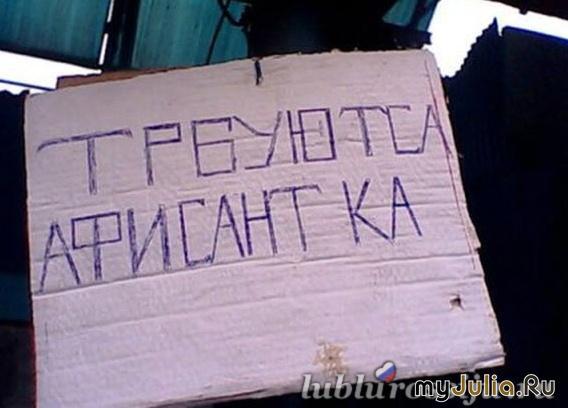 ТРБУЮТСА
АФИСАНТ КА
myJulia.Ru